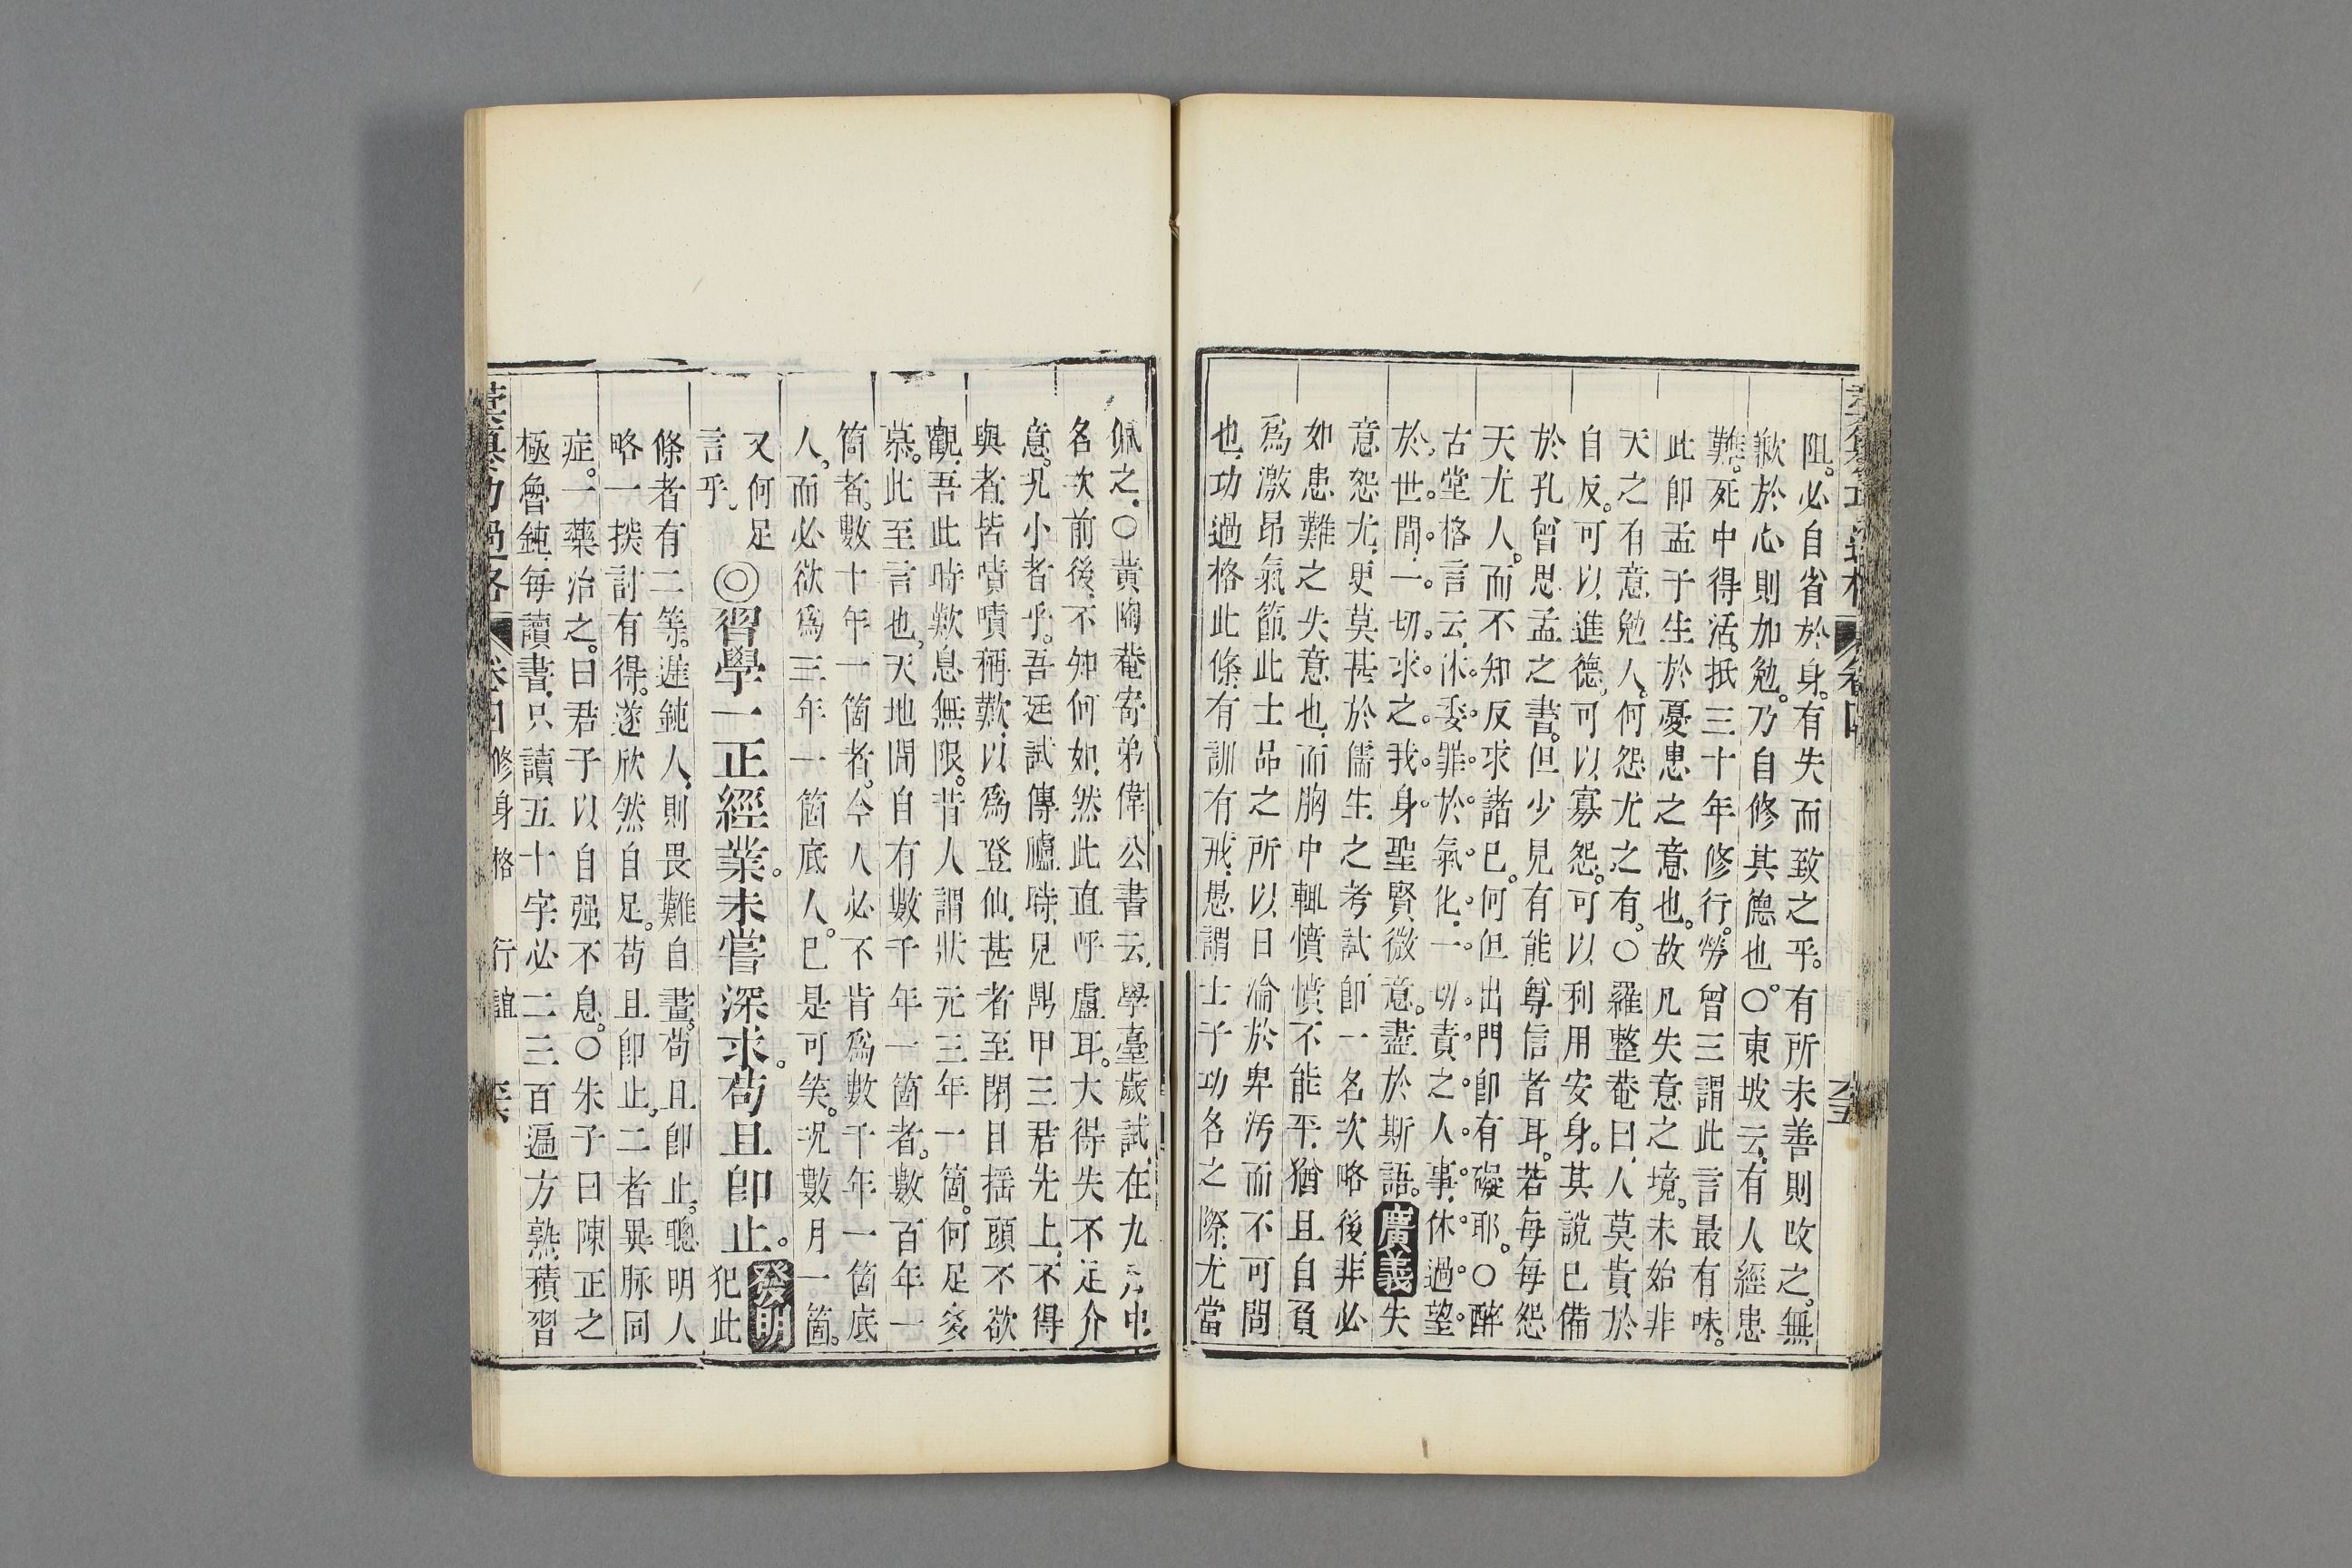 阻。必自省於身。有失而致之乎。有所未善則改之。無
歉於心則加勉。乃自修其德也。○東坡云。有人經患
難。死中得活。抵三十年修行。勞曾三謂此言最有味。
此即孟子生於憂患之意也。故凡失意之境。未始非
天之有意勉人。何怨尤之有。○羅整菴曰。人莫貴於
自反。可以進德。可以寡怨。可以利用安身。其說已備
於孔曾思孟之書。但少見有能尊信者耳。若每每怨
天尤人。而不知反求諸己。何但出門即有礙耶。○醉
古堂格言云。休委罪於氣化。一切責之人事。休過望
於世間。一切求之我身。聖賢微意。盡於斯語。廣義失
意怨尤。更莫甚於儒生之考試。即一名次略後。非必
如患難之失意也。而胸中輒憤憤不能平。猶且自負
為激昂氣節。此士品之所以日淪於卑汚而不可問
也。功過格此條。有訓有戒。愚謂士子功名之際。尤當
佩之。○黃陶菴寄弟偉公書云。學臺歲試。在九月中。
名次前後。不知何如。然此直呼盧耳。大得失不足介
意。況小者乎。吾廷試傳臚時。見鼎甲三君先上。不得
與者。皆嘖嘖稱歎。以為登仙。甚者至閉目搖頭不欲
觀。吾此時歎息無限。昔人謂狀元三年一箇。何足多
慕。此至言也。天地間自有數千年一箇者。數百年一
箇者。數十年一箇者。今人必不肯為數千年一箇底
人。而必欲為三年一箇底人。已是可笑。況數月一箇。
又何足
言乎。
◎習學一正經業。未嘗深求。苟且即止。發明
犯此
條者有二等。遲鈍人。則畏難自畫。苟且即止。聰明人
略一探討有得。遂欣然自足。苟且即止。二者異脉同
症。一藥治之。曰君子以自强不息。○朱子曰陳正之
極魯鈍。每讀書。只讀五十字。必二三百遍方熟。積習
修身格 行誼